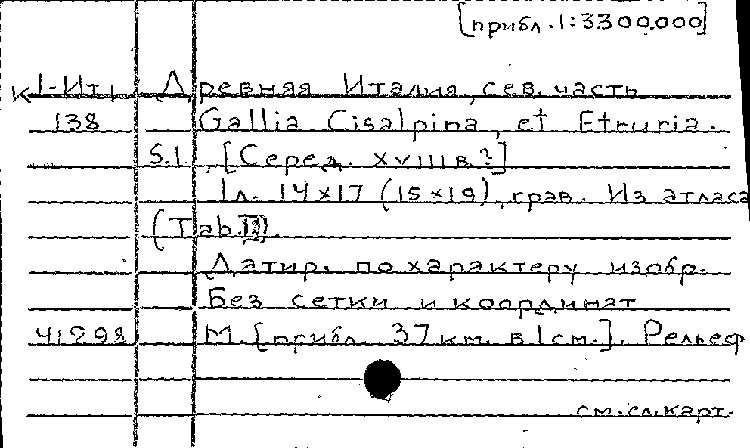 [прибл. 1:3300.000]
К 1-Ит Древняя Италия, сев. часть
138 Gallia Cisalpina, et Etruria.
S.l., [Серед. XVIII в.?]
1л. 14×17 (15×19), грав. Из атласа
(Tab.II).
Датир. по характеру изобр.
Без сетки и координат
41298 М. [прибл. 37 км. в 1 см.]. Рельеф
см. сл. карт.